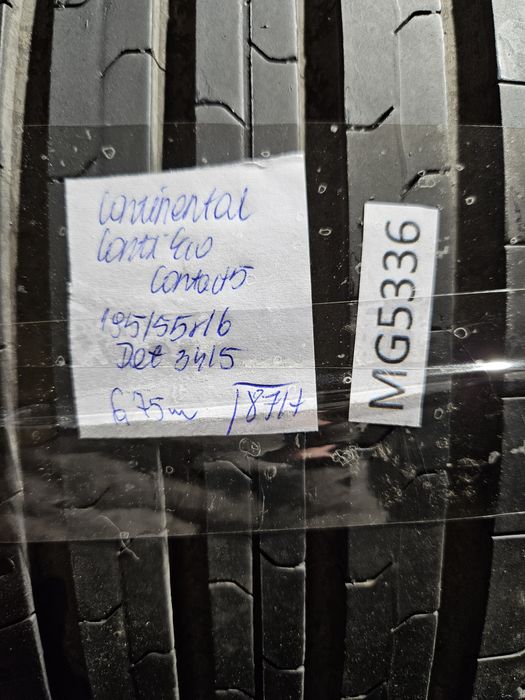 Continental
Conti Eco
Contact5
195/55r16
Dot 3415
6.75m 87H
MG5336